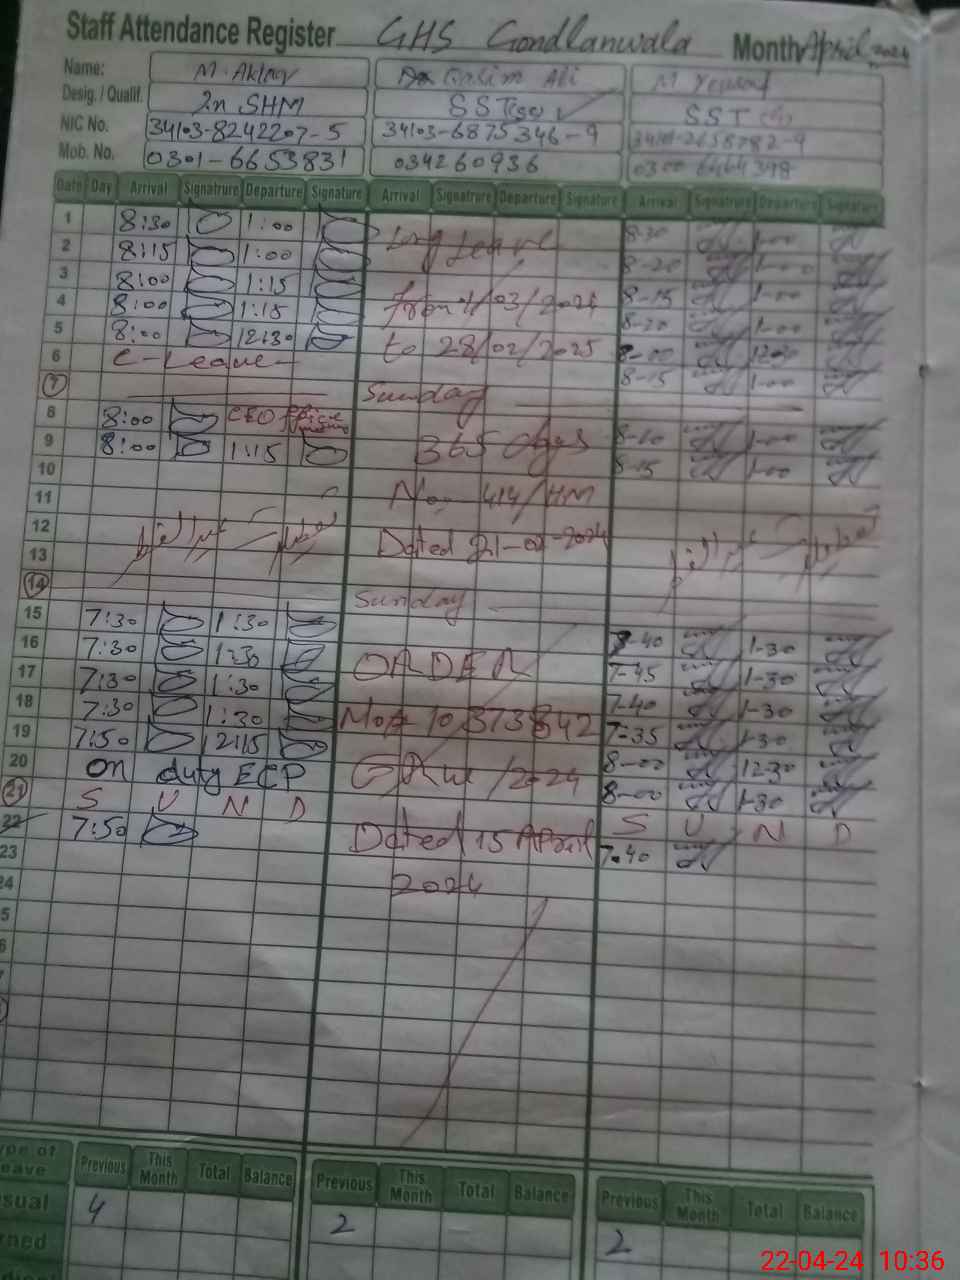 Staff Attendance Register GHS Gondlanwala Month April 2024
Name: M. Akhtar Qasim Ali M Yousaf
Desig. / Qualif. In SHM SST SST
NIC No. 34103-8242207-5 34103-6875346-9
Mob. No. 0301-6653831 034260936
Date Day Arrival Signatrure Departure Signature Arrival Signatrure Departure Signature Arrival Signatrure Departure Signature
1 8:30 1:00 Long Leave 8-30 1-00
2 8:15 1:00 8-20 1-00
3 8:00 1:15 from 1/03/2024 8-15 1-00
4 8:00 1:15 8-20 1-00
5 8:00 12:30 to 28/02/2025 8-00 12-30
6 C-Leave 8-15 1-00
7 Sunday
8 8:00 CEO office 8-10 1-00
9 8:00 1:15 365 days 8-15 1-00
10
11 No. 414/HM
12 عید الفطر تعطیل عید الفطر تعطیل
13 Dated 21-02-2024
14 Sunday
15 7:30 1:30 7-40 1-30
16 7:30 1:30 ORDER 7-45 1-30
17 7:30 1:30 7-40 1-30
18 7:30 1:30 No 10373842 7-35 1-30
19 7:50 12:15 8-00 12-30
20 On duty ECP GRW/2024 8-00 1-30
21 S U N D S U N D
22 7:50 Dated 15 April 7-40
23
24 2024
5
6
7
Type of Leave Previous This Month Total Balance Previous This Month Total Balance Previous This Month Total Balance
sual 4 2 2
rned
22-04-24 10:36